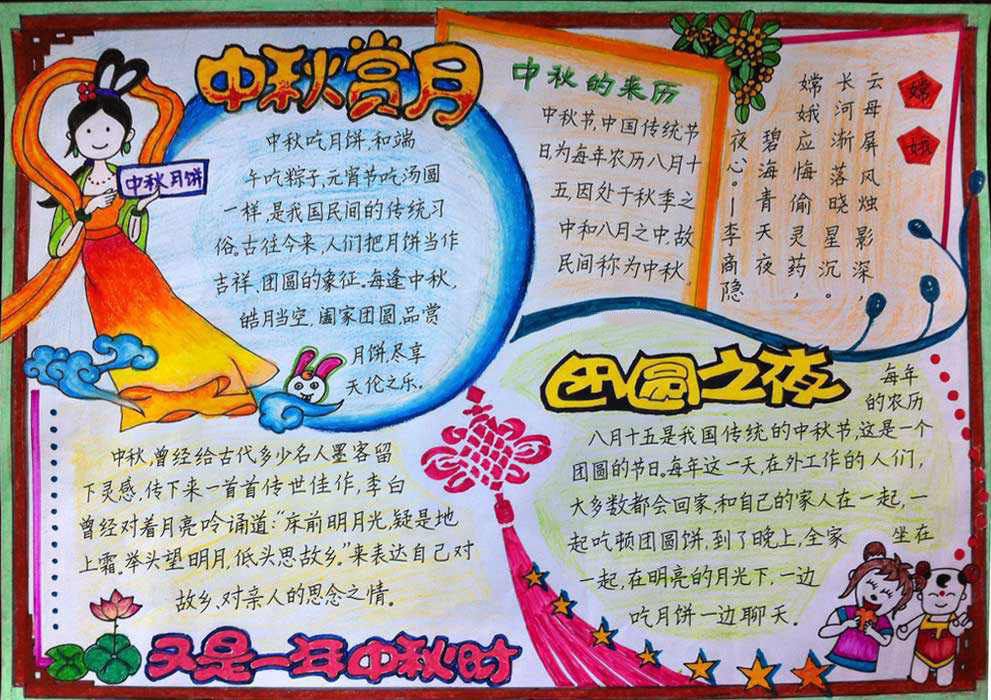 中秋赏月
中秋月饼
中秋吃月饼,和端
午吃粽子,元宵节吃汤圆
一样,是我国民间的传统习
俗。古往今来,人们把月饼当作
吉祥、团圆的象征。每逢中秋,
皓月当空,阖家团圆,品赏
月饼,尽享
天伦之乐。
中秋的来历
中秋节,中国传统节
日为每年农历八月十
五,因处于秋季之
中和八月之中,故
民间称为中秋。
嫦
娥
云母屏风烛影深,
长河渐落晓星沉。
嫦娥应悔偷灵药,
碧海青天夜
夜心。—李商隐
团圆之夜
每年
的农历
八月十五是我国传统的中秋节,这是一个
团圆的节日。每年这一天,在外工作的人们,
大多数都会回家,和自己的家人在一起,一
起吃顿团圆饼,到了晚上,全家 坐在
一起,在明亮的月光下,一边
吃月饼一边聊天.
中秋,曾经给古代多少名人墨客留
下灵感,传下来一首首传世佳作,李白
曾经对着月亮吟诵道:“床前明月光,疑是地
上霜。举头望明月,低头思故乡。”来表达自己对
故乡、对亲人的思念之情。
又是一年中秋时